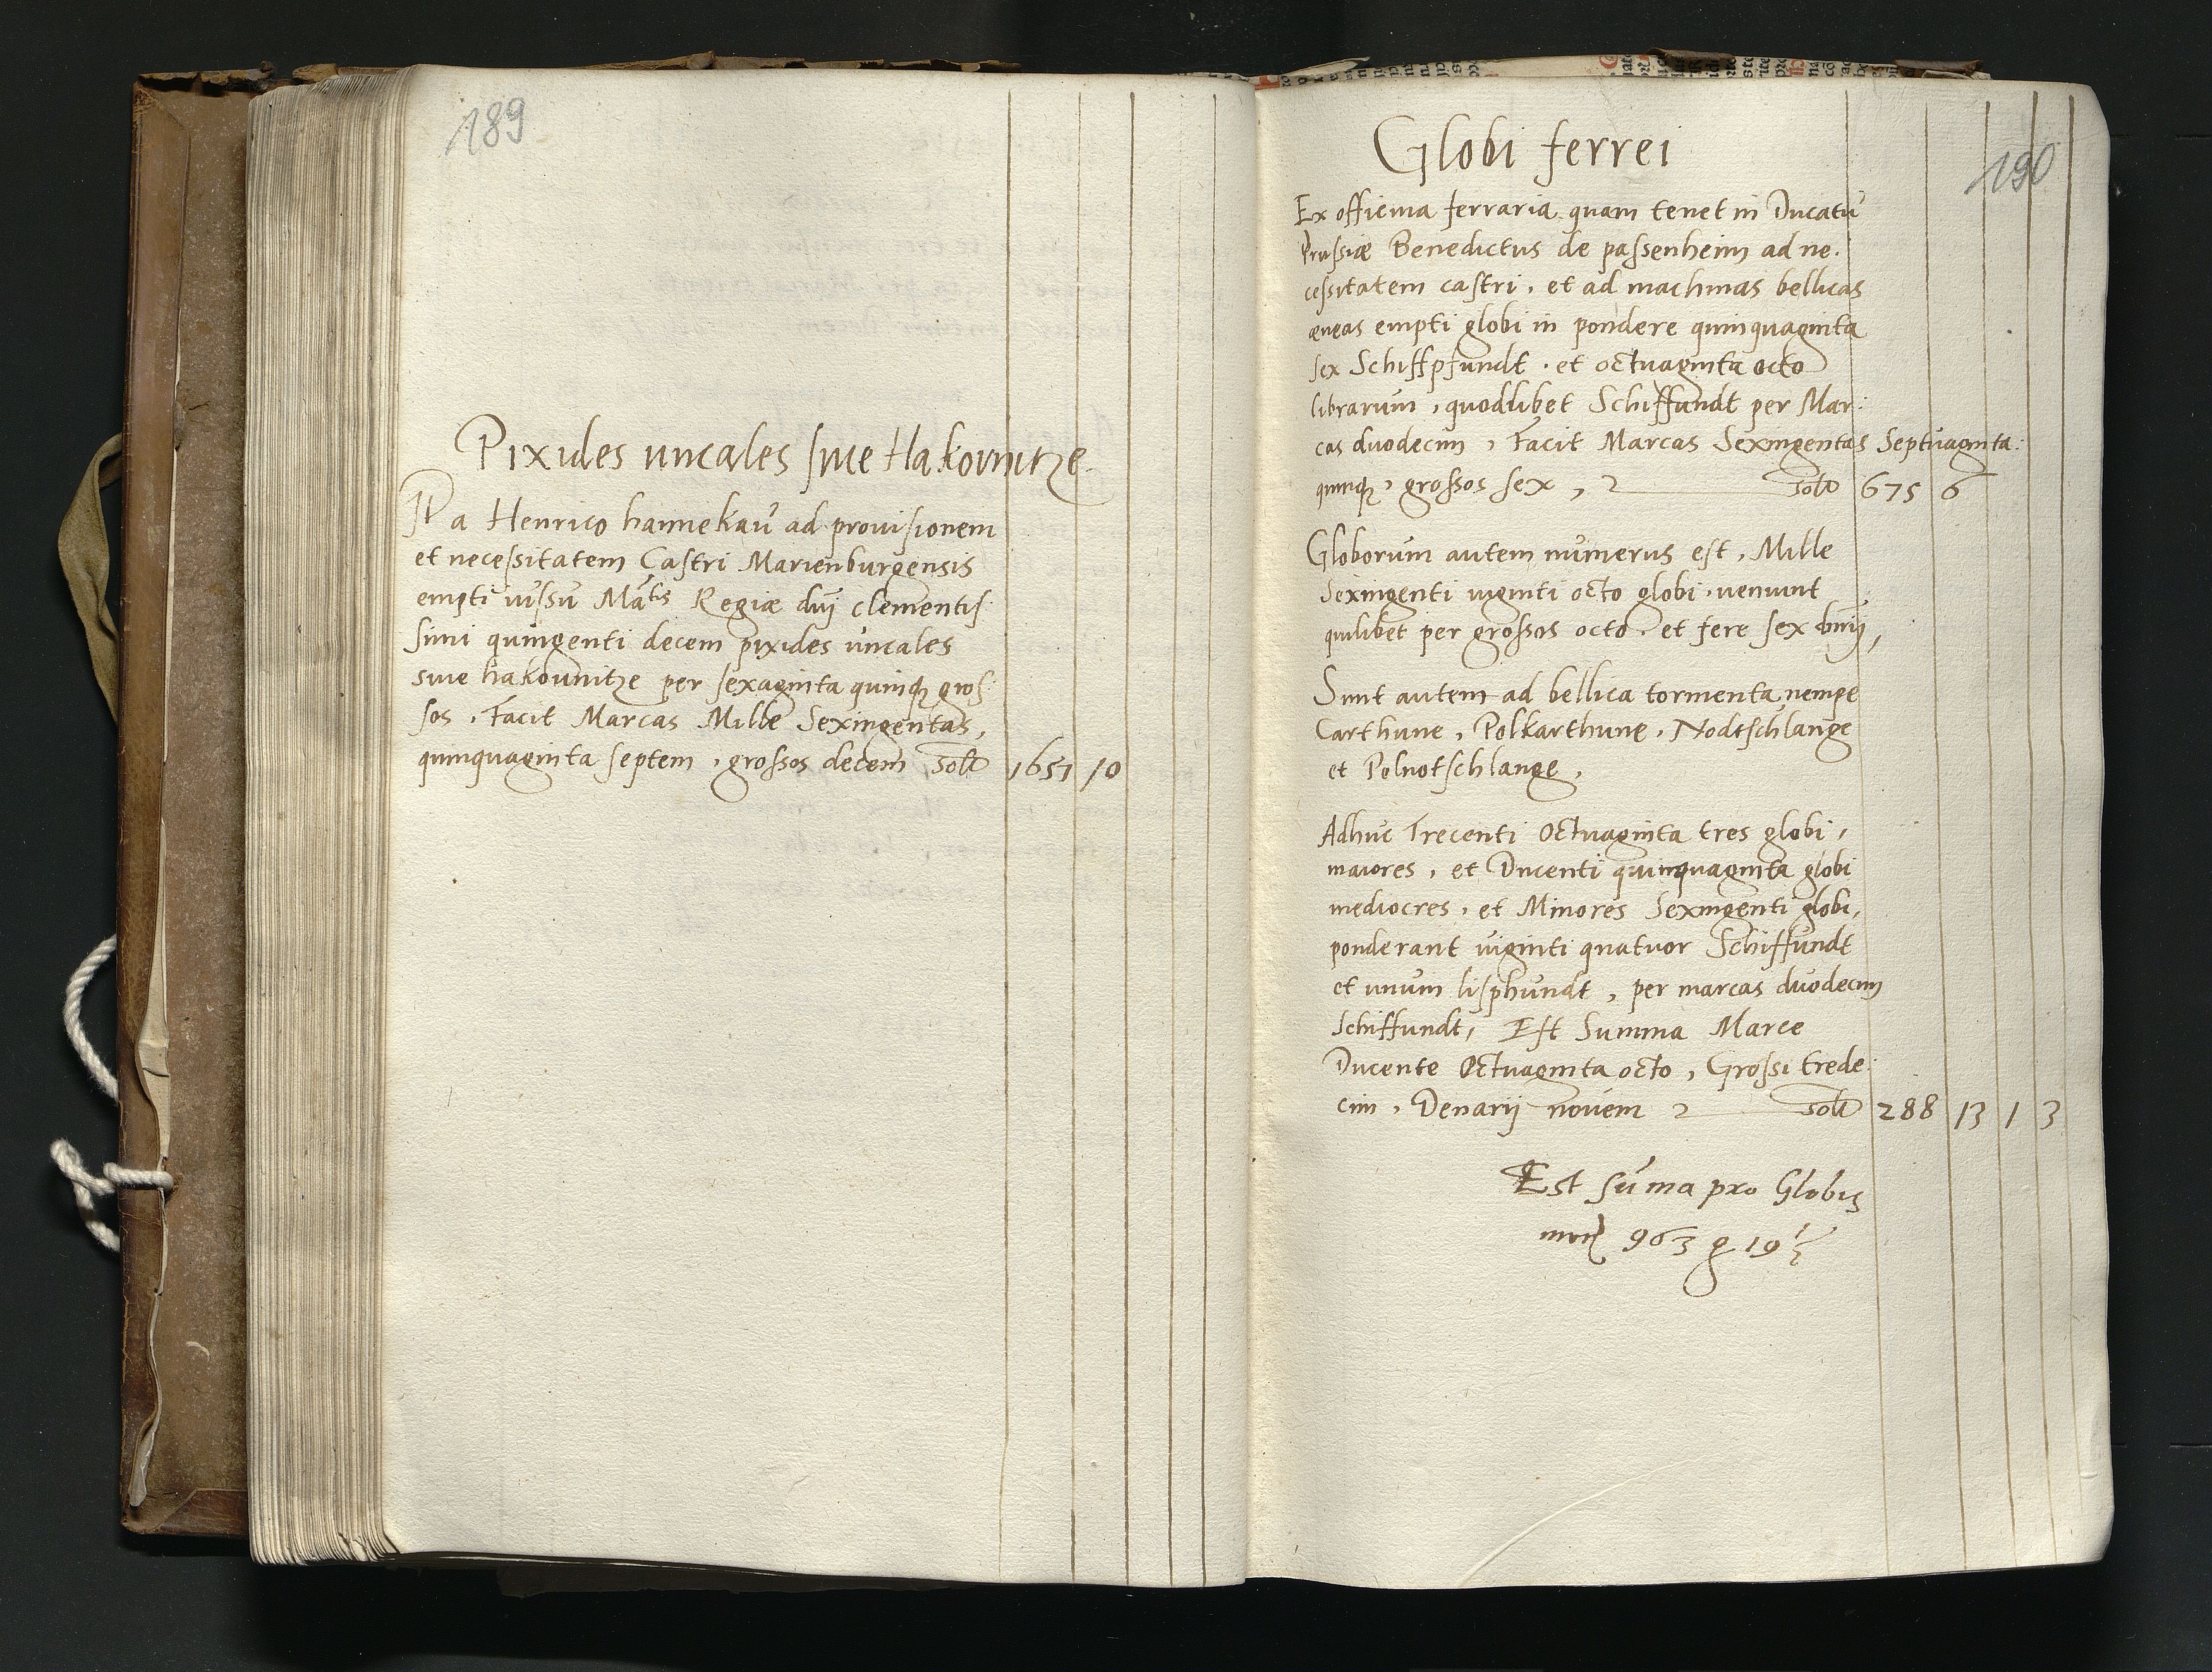 189
Pixides uncales siue Hakovnitze
a Henrico hannekaŭ ad prouisionem
et necessitatem Castri Marienburgensis
empti iussu Ma^tis Regiæ dnj clementis
simi quingenti decem pixides uncales
siue hakovnitze per sexaginta quinqȝ gros
sos, Facit Marcas Mille Sexingentas,
quinquaginta septem, grossos decem solũ 1657 10
190
Globi ferrei
Ex officina ferraria quam tenet in Ducatŭ
Prussiæ Benedictus de passenheim ad ne.
cessitatem castri, et ad machinas bellicas
æneas empti globi in pondere quinquaginta
sex Schiffpfundt, et octuaginta octo
librarum, quodlibet Schiffundt per Mar:
cas duodecim, Facit Marcas Sexingentas Septuaginta:
quinqȝ, grossos sex, solũ 675 6
Globorum autem numerus est, Mille
Sexingenti uiginti octo globi, ueniunt
quilibet per grossos octo, et fere sex
Sunt autem ad bellica tormenta, nempe
Carthune, Polkarthune, Nodtschlange
et Polnotschlange,
Adhuc Trecenti Octuaginta tres globi,
maiores, et Ducenti quinquaginta globi
mediocres, et Minores Sexingenti globi,
ponderant uiginti quatuor Schiffundt
et unum lisphundt, per marcas duodecim
Schiffundt, Est Summa Marce
Ducente Octuaginta octo, Grossi trede:
cim, Denarij novem solũ 288 13 1 3
Est sŭma pro Globis
963 g 19 ½